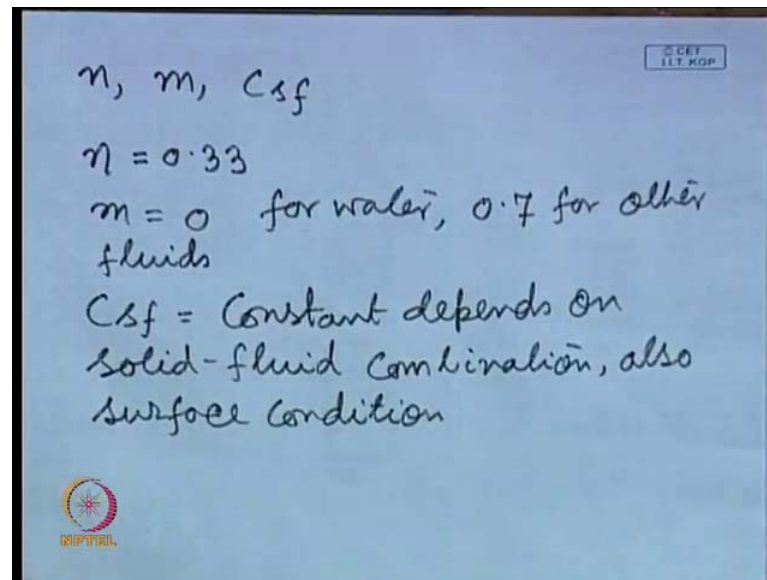 © CET
I.I.T. KGP
n, m, Csf
n = 0.33
m = 0 for water, 0.7 for other
fluids
Csf = Constant depends on
solid-fluid combination, also
surface condition
NPTEL